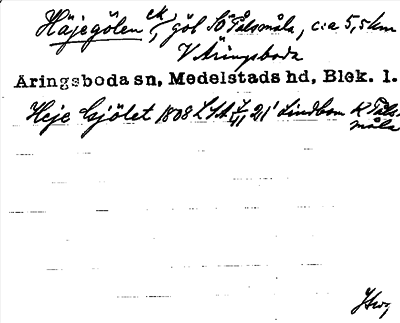 Häjegölen ek/, göl SÖ Pålsmåla, c:a 5,5 km
V Åringsboda
Åringsboda sn, Medelstads hd, Blek. l.
Heje Gjölet 1808 LSA 21' Lindbom K Påls-
måla